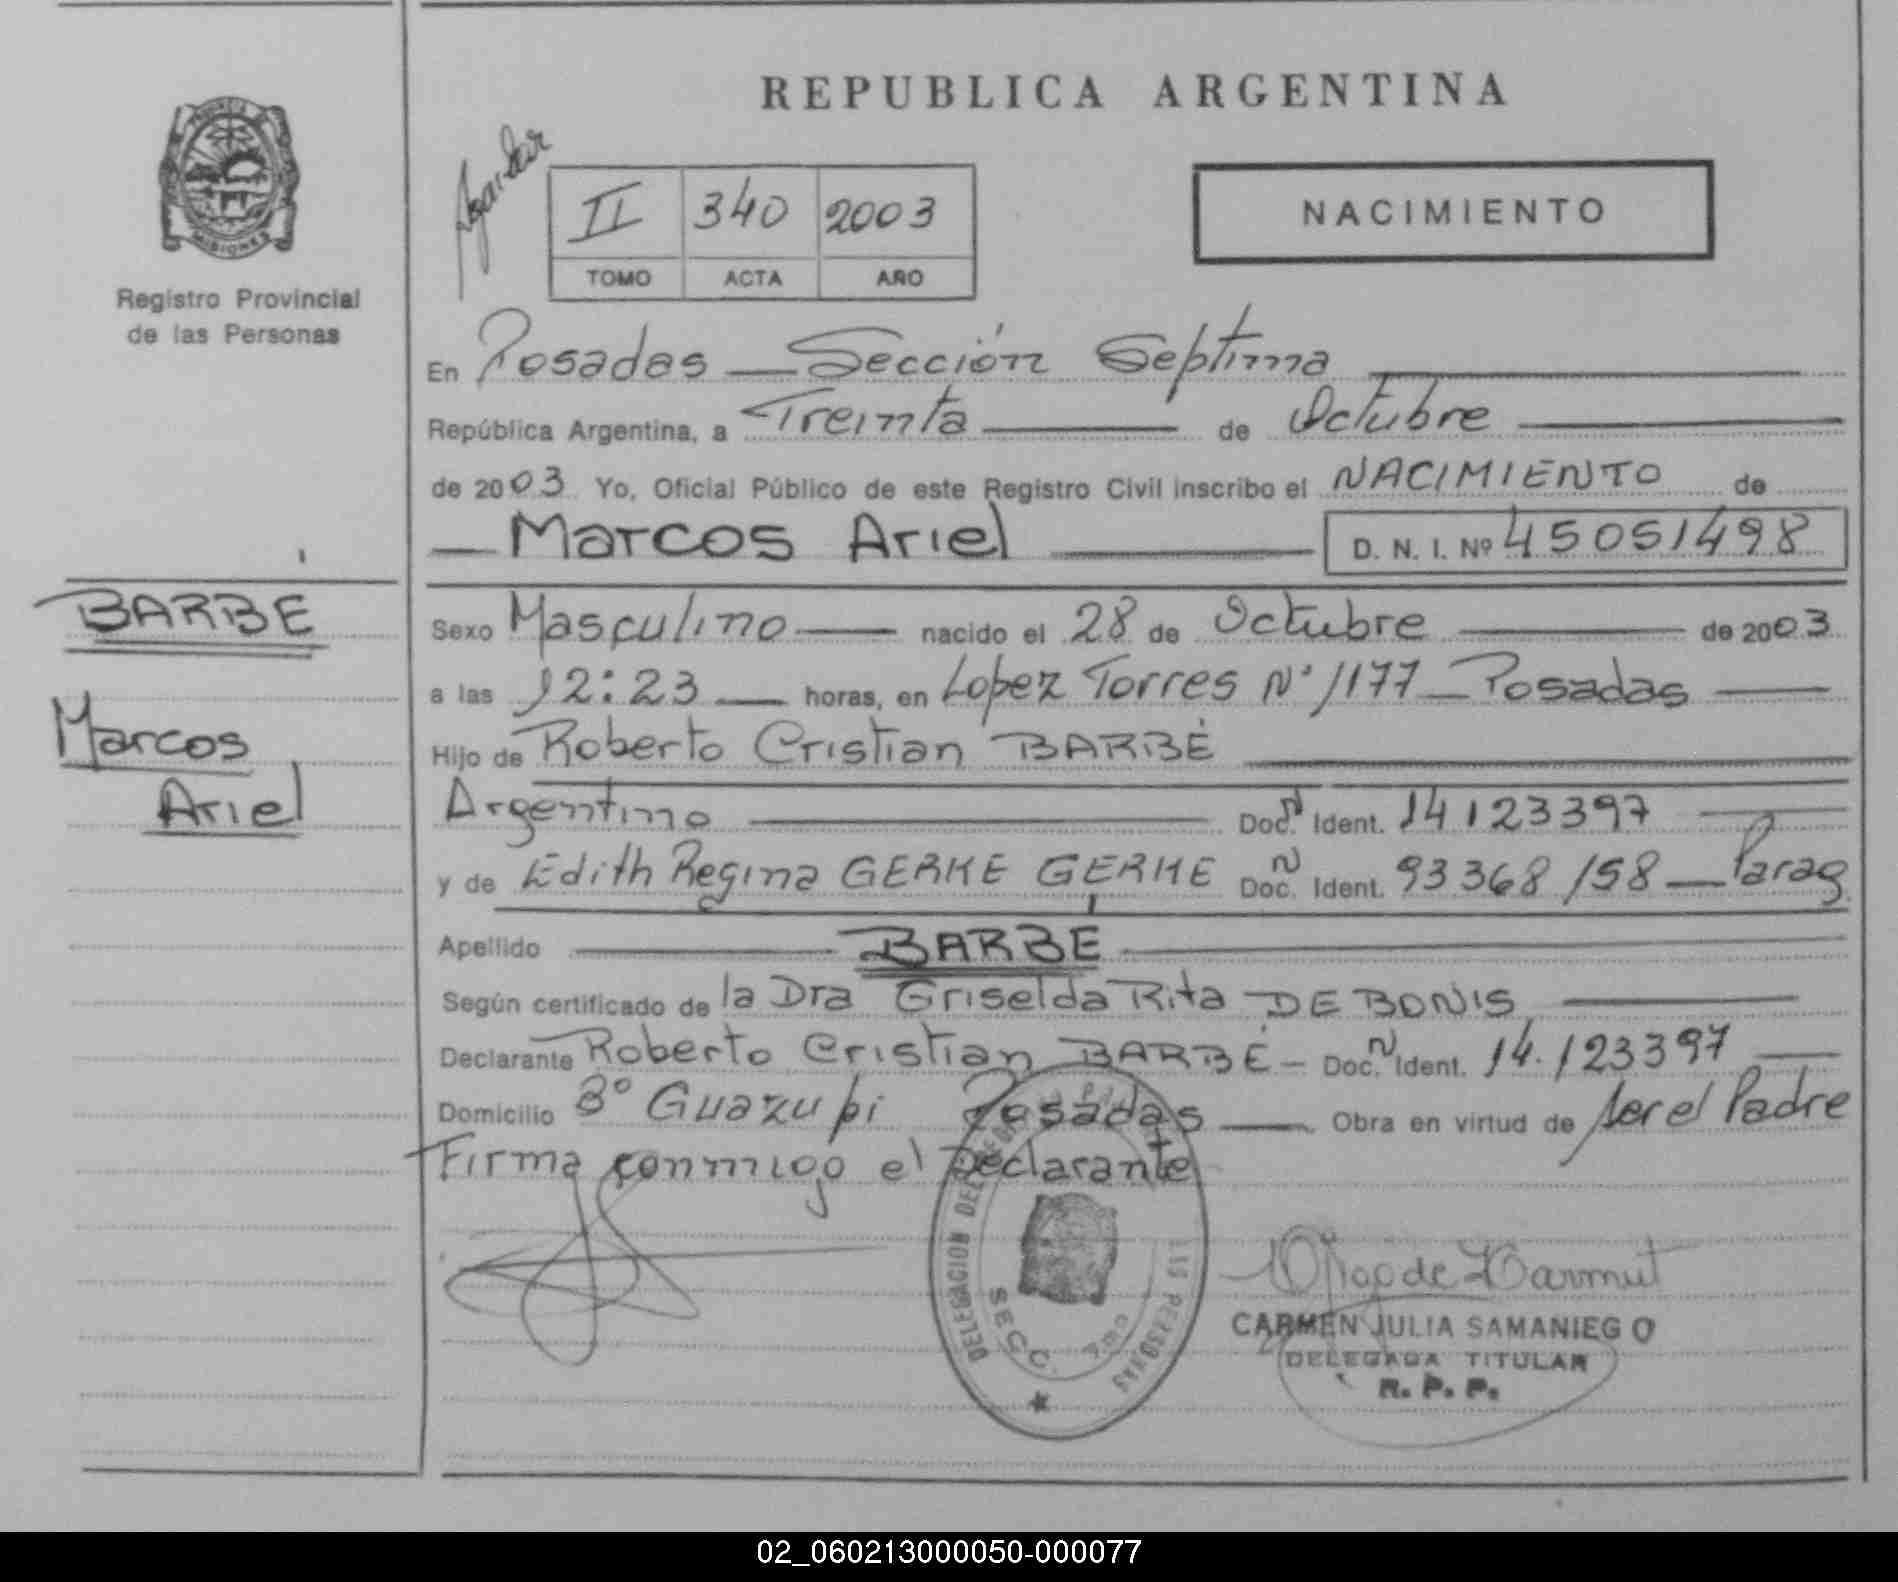 REPUBLICA ARGENTINA
PROVINCIA
MISIONES
Registro Provincial
de las Personas
II 340 2003
TOMO ACTA AÑO
NACIMIENTO
En Posadas — Sección Septima
República Argentina, a Treinta de Octubre
de 2003 Yo, Oficial Público de este Registro Civil inscribo el NACIMIENTO de
— Marcos Ariel — D. N. I. Nº 45051498
BARBÉ
Marcos
Ariel
Sexo Masculino — nacido el 28 de Octubre — de 2003
a las 12:23 — horas, en Lopez Torres Nº 1177 — Posadas —
Hijo de Roberto Cristian BARBÉ
Argentino — Doc. N Ident. 14123397
y de Edith Regina GERKE GERKE Doc. N Ident. 93368158 — Parag
Apellido — BARBÉ
Según certificado de la Dra Griselda Rita DE BONIS —
Declarante Roberto Cristian BARBÉ — Doc. N Ident. 14.123397 —
Domicilio Bº Guazupi Posadas — Obra en virtud de ser el Padre
Firma conmigo el Declarante
DELEGACION DEL
SECC.
LAS PERSONAS
CARMEN JULIA SAMANIEGO
DELEGADA TITULAR
R. P. P.
02_060213000050-000077